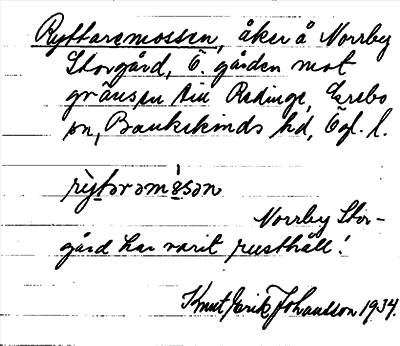 Ryttaremossen, åker å Norrby
Storgård, Ö. gården mot
gränsen till Redinge, Ekebo
sn, Bankekinds hd, Ögl. l.
rỳtarəmòsən
Norrby Stor-
gård har varit rusthåll!
Knut Erik Johansson 1934.